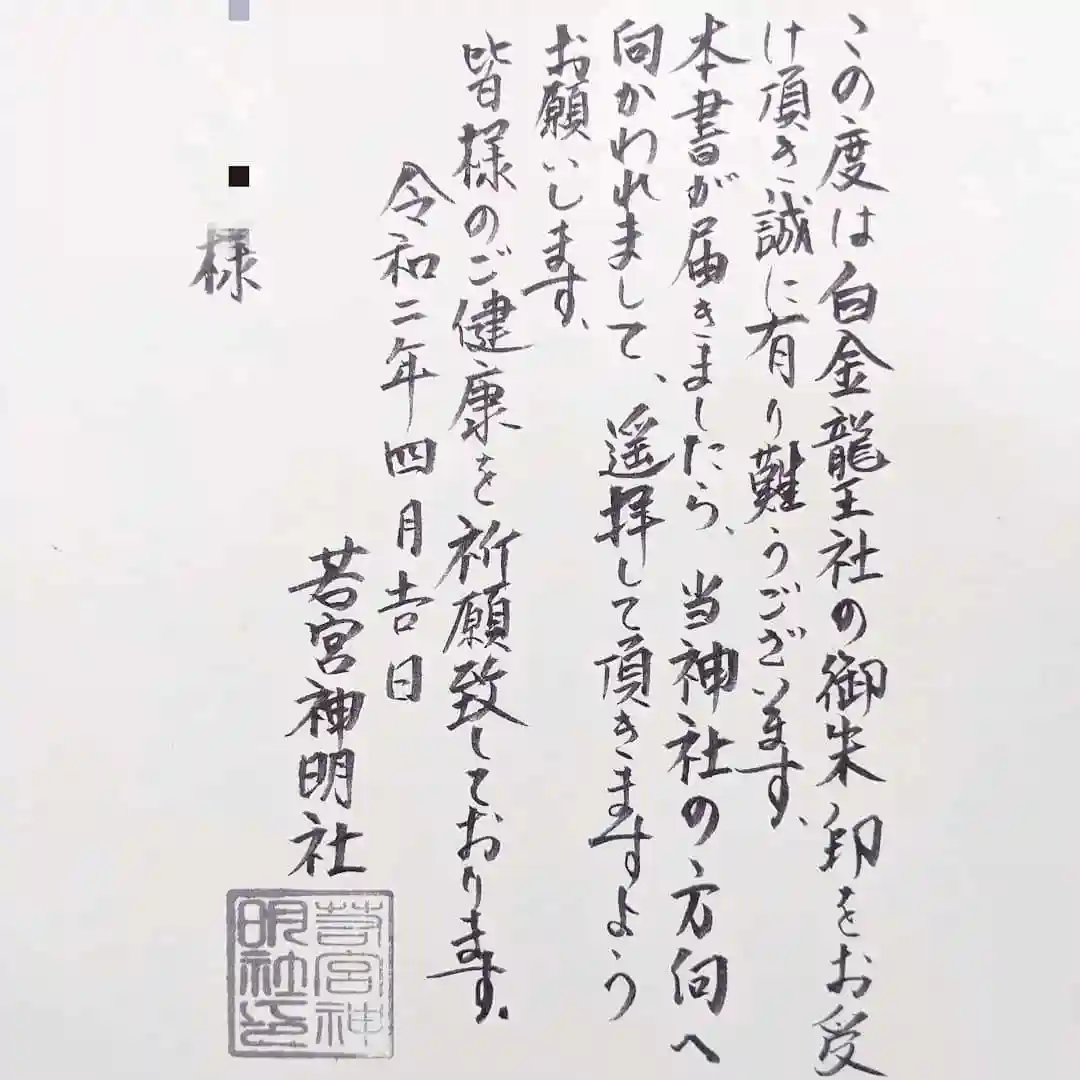 この度は白金龍王社の御朱印をお受
け頂き誠に有り難うございます、
本書が届きましたら、当神社の方向へ
向かわれまして、遥拝して頂きますよう
お願いします、
皆様のご健康を祈願致しております。
令和二年四月吉日
若宮神明社
若宮神
明社印
様